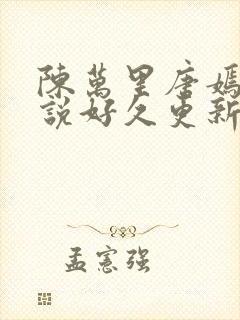 陳萬里唐嫣
說好久更新
孟憲強